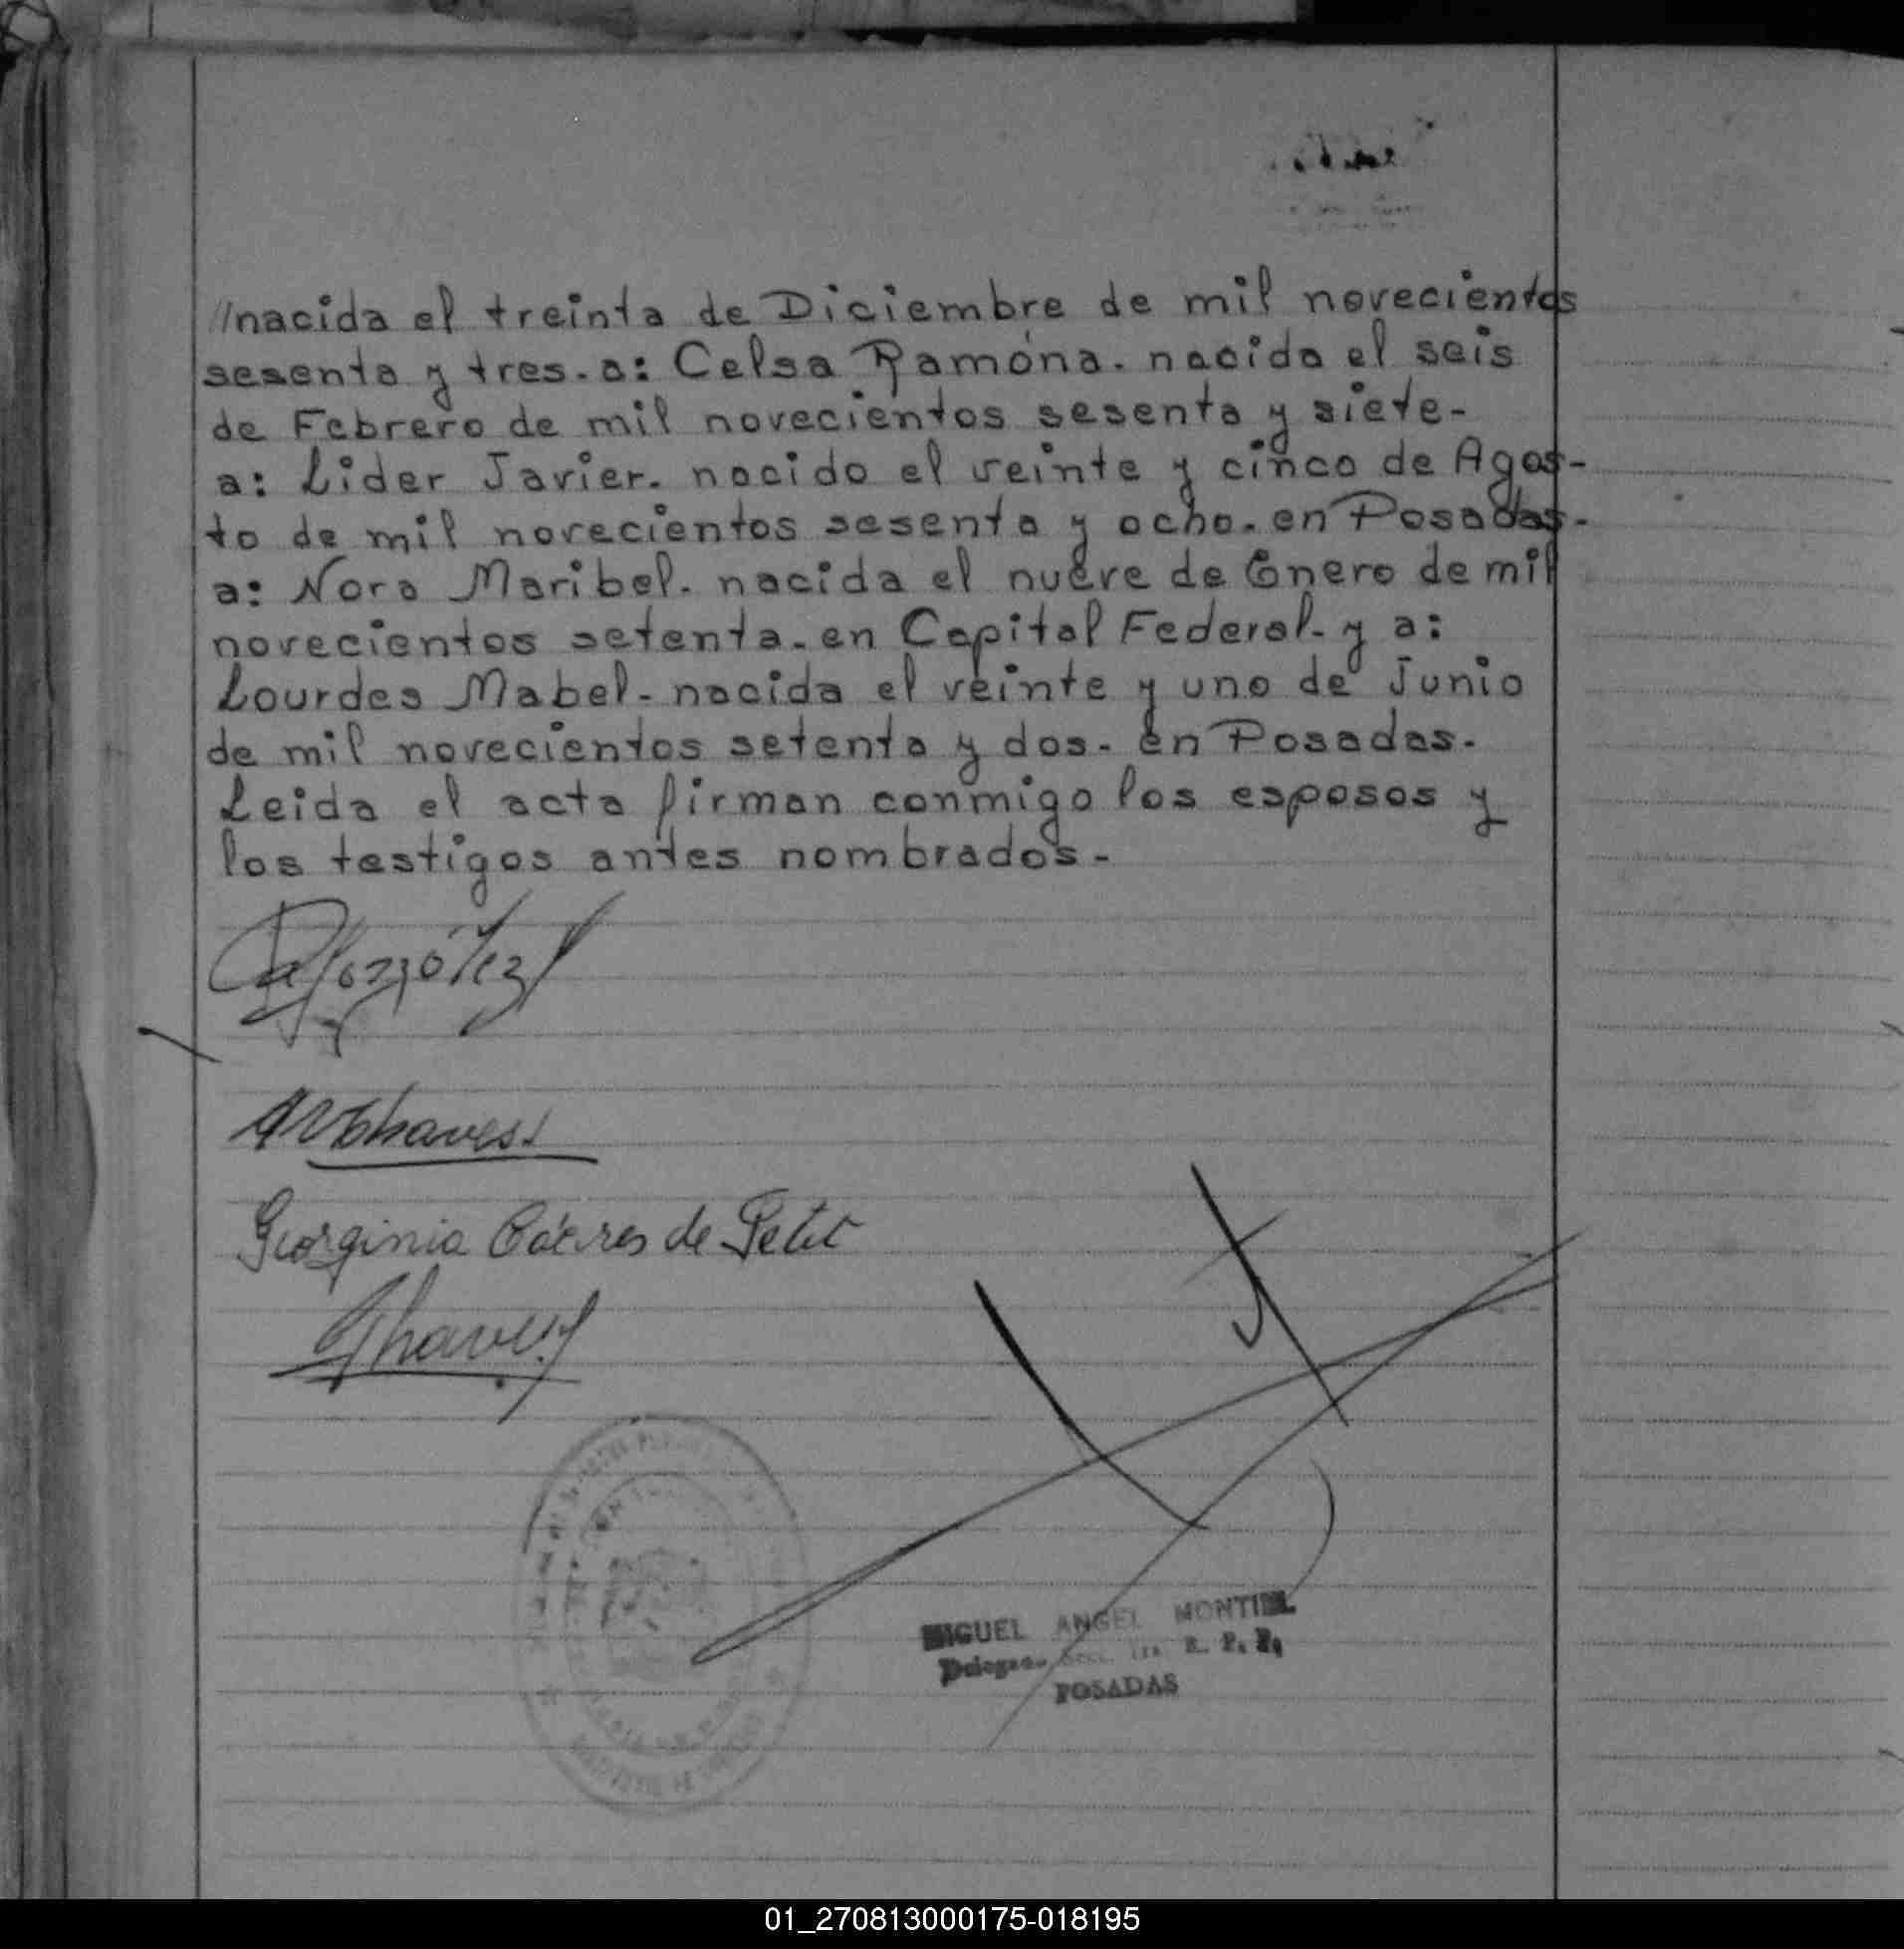 //nacida el treinta de Diciembre de mil novecientos
sesenta y tres. a: Celsa Ramóna. nacida el seis
de Febrero de mil novecientos sesenta y siete-
a: Lider Javier. nacido el veinte y cinco de Agos-
to de mil novecientos sesenta y ocho. en Posadas.
a: Nora Maribel. nacida el nueve de Enero de mil
novecientos setenta. en Capital Federal. y a:
Lourdes Mabel- nacida el veinte y uno de Junio
de mil novecientos setenta y dos- en Posadas.
Leida el acta firman conmigo los esposos y
los testigos antes nombrados-
Georginia Cáceres de Petit
MIGUEL ANGEL MONTIEL
R. P. P.
POSADAS
01_270813000175-018195